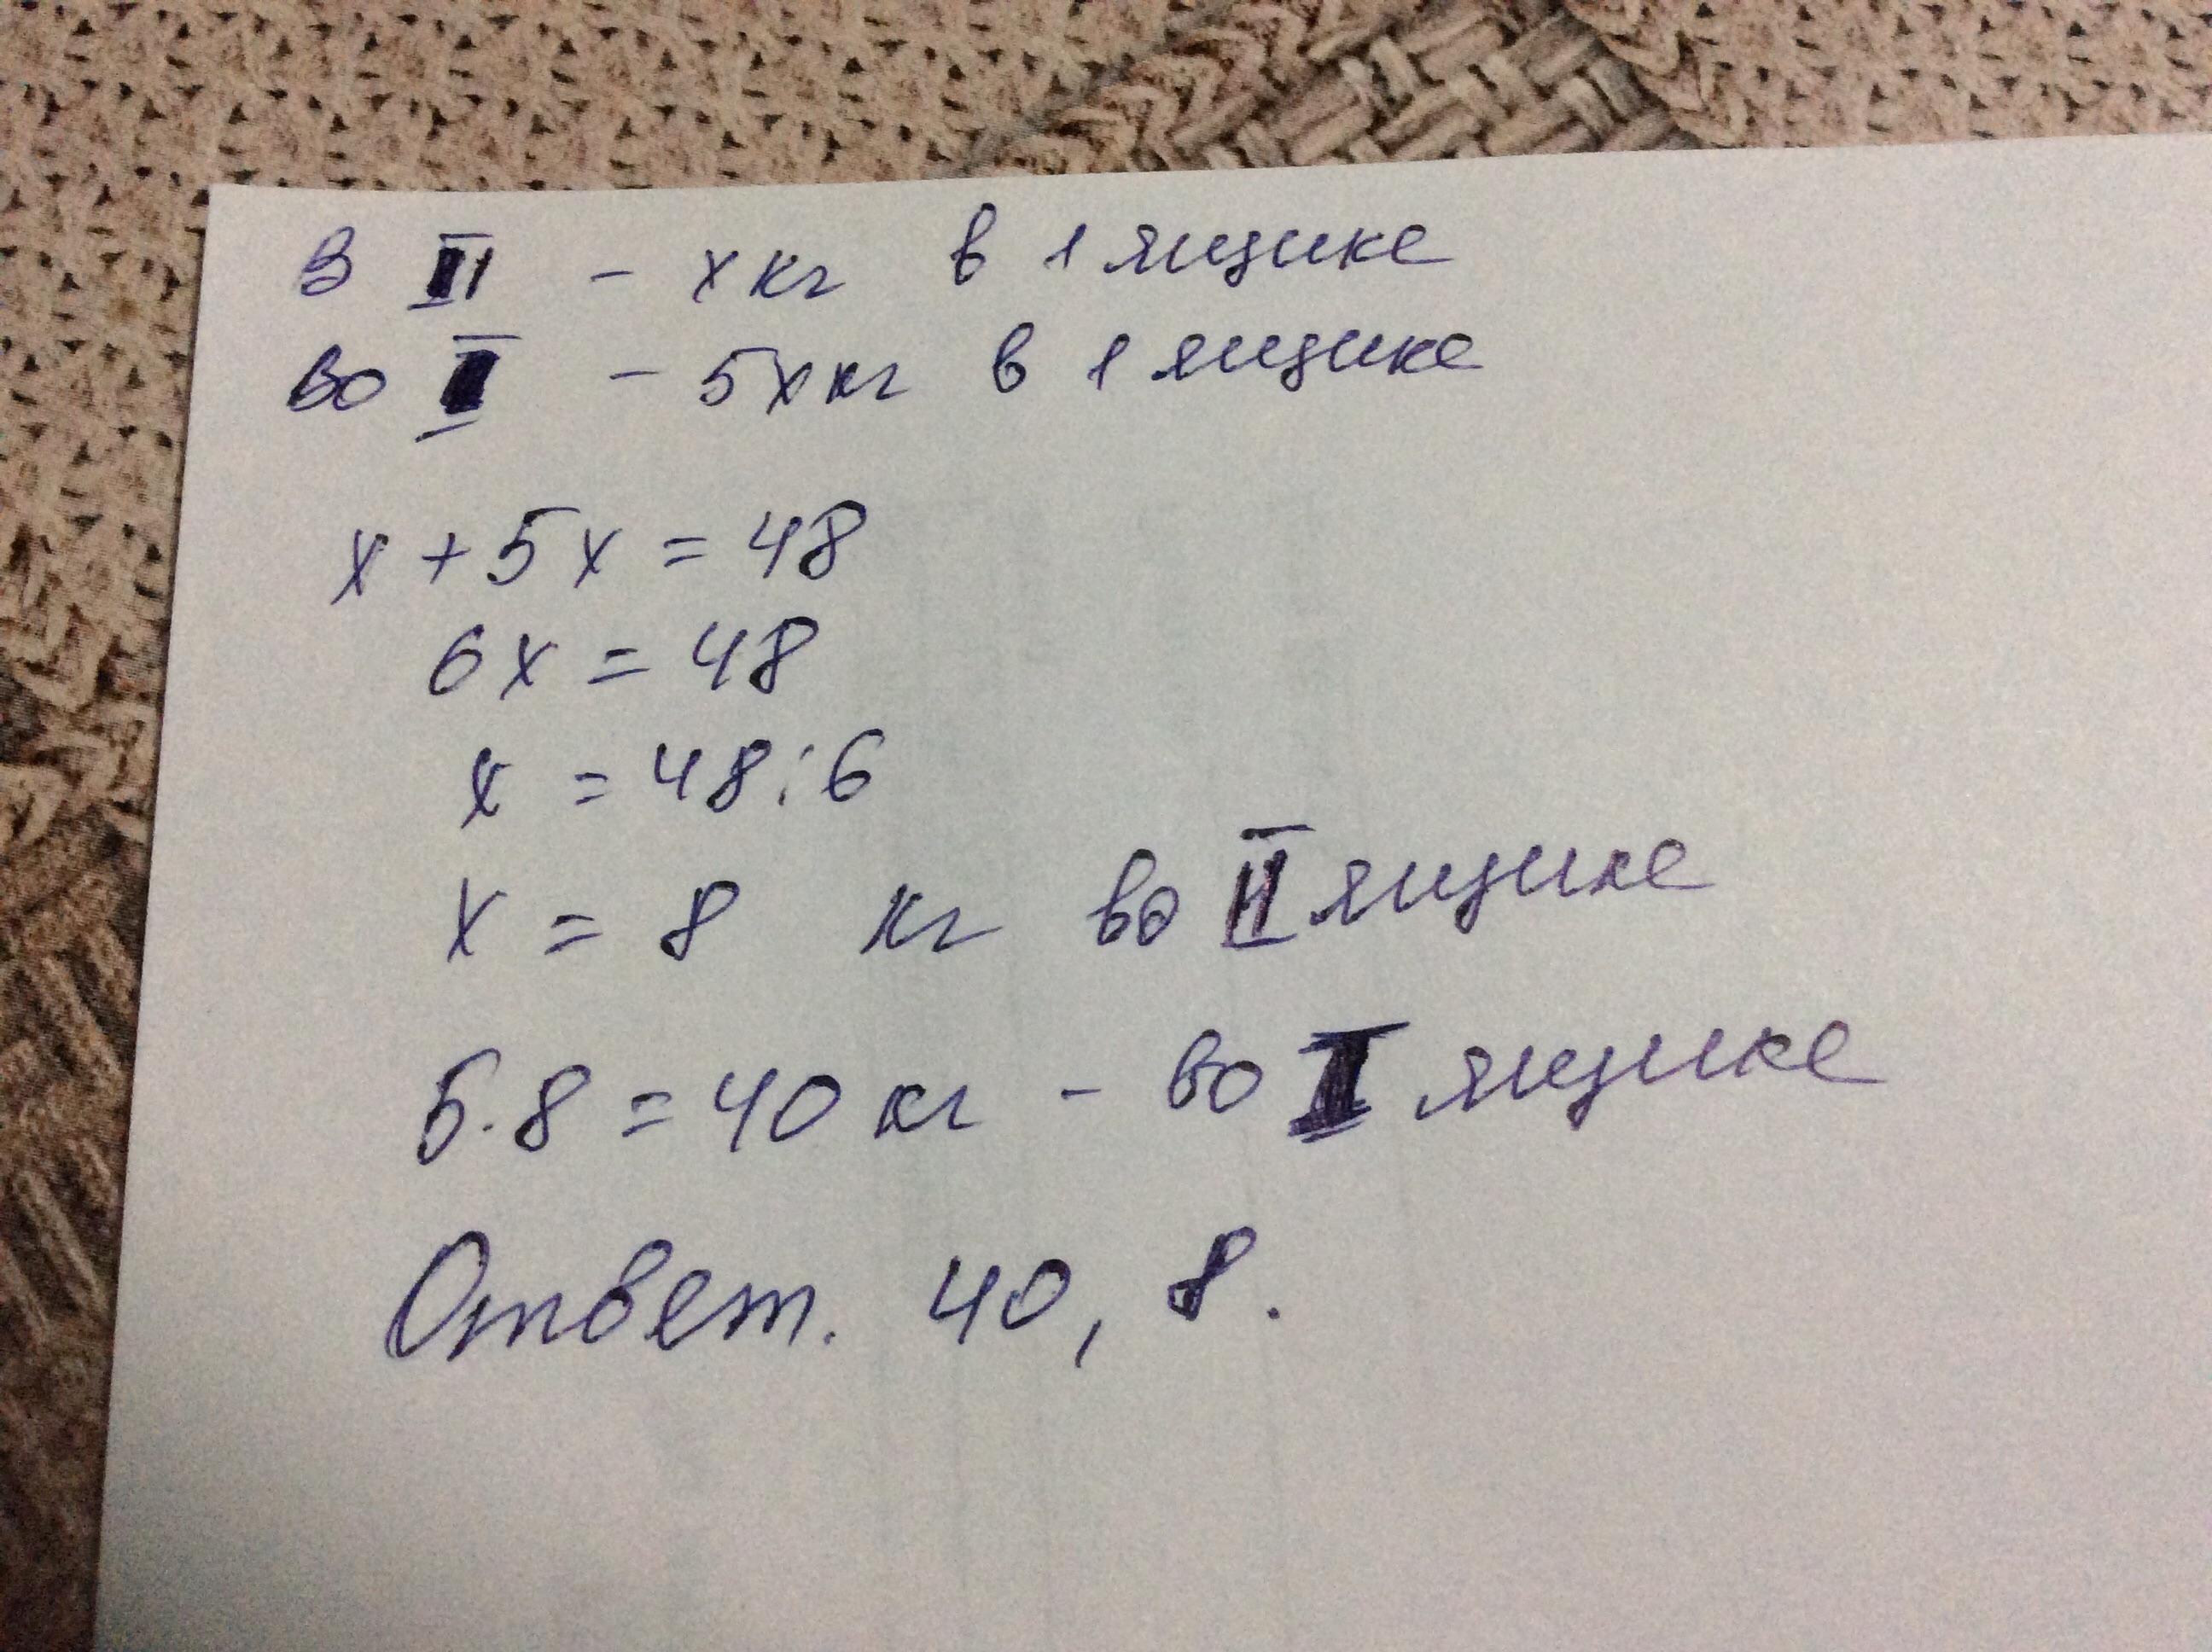 В II - x кг в 1 ящике
во I - 5x кг в 1 ящике
x + 5x = 48
6x = 48
x = 48 : 6
x = 8 кг во II ящике
5 · 8 = 40 кг - во I ящике
Ответ. 40, 8.